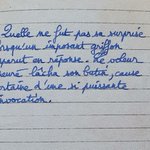 Quelle ne fut pas sa surprise
lorsqu'un imposant griffon
parut en réponse. Le voleur
leuré lâcha son butin, cause
ortaine d'une si puissante
nvocation.